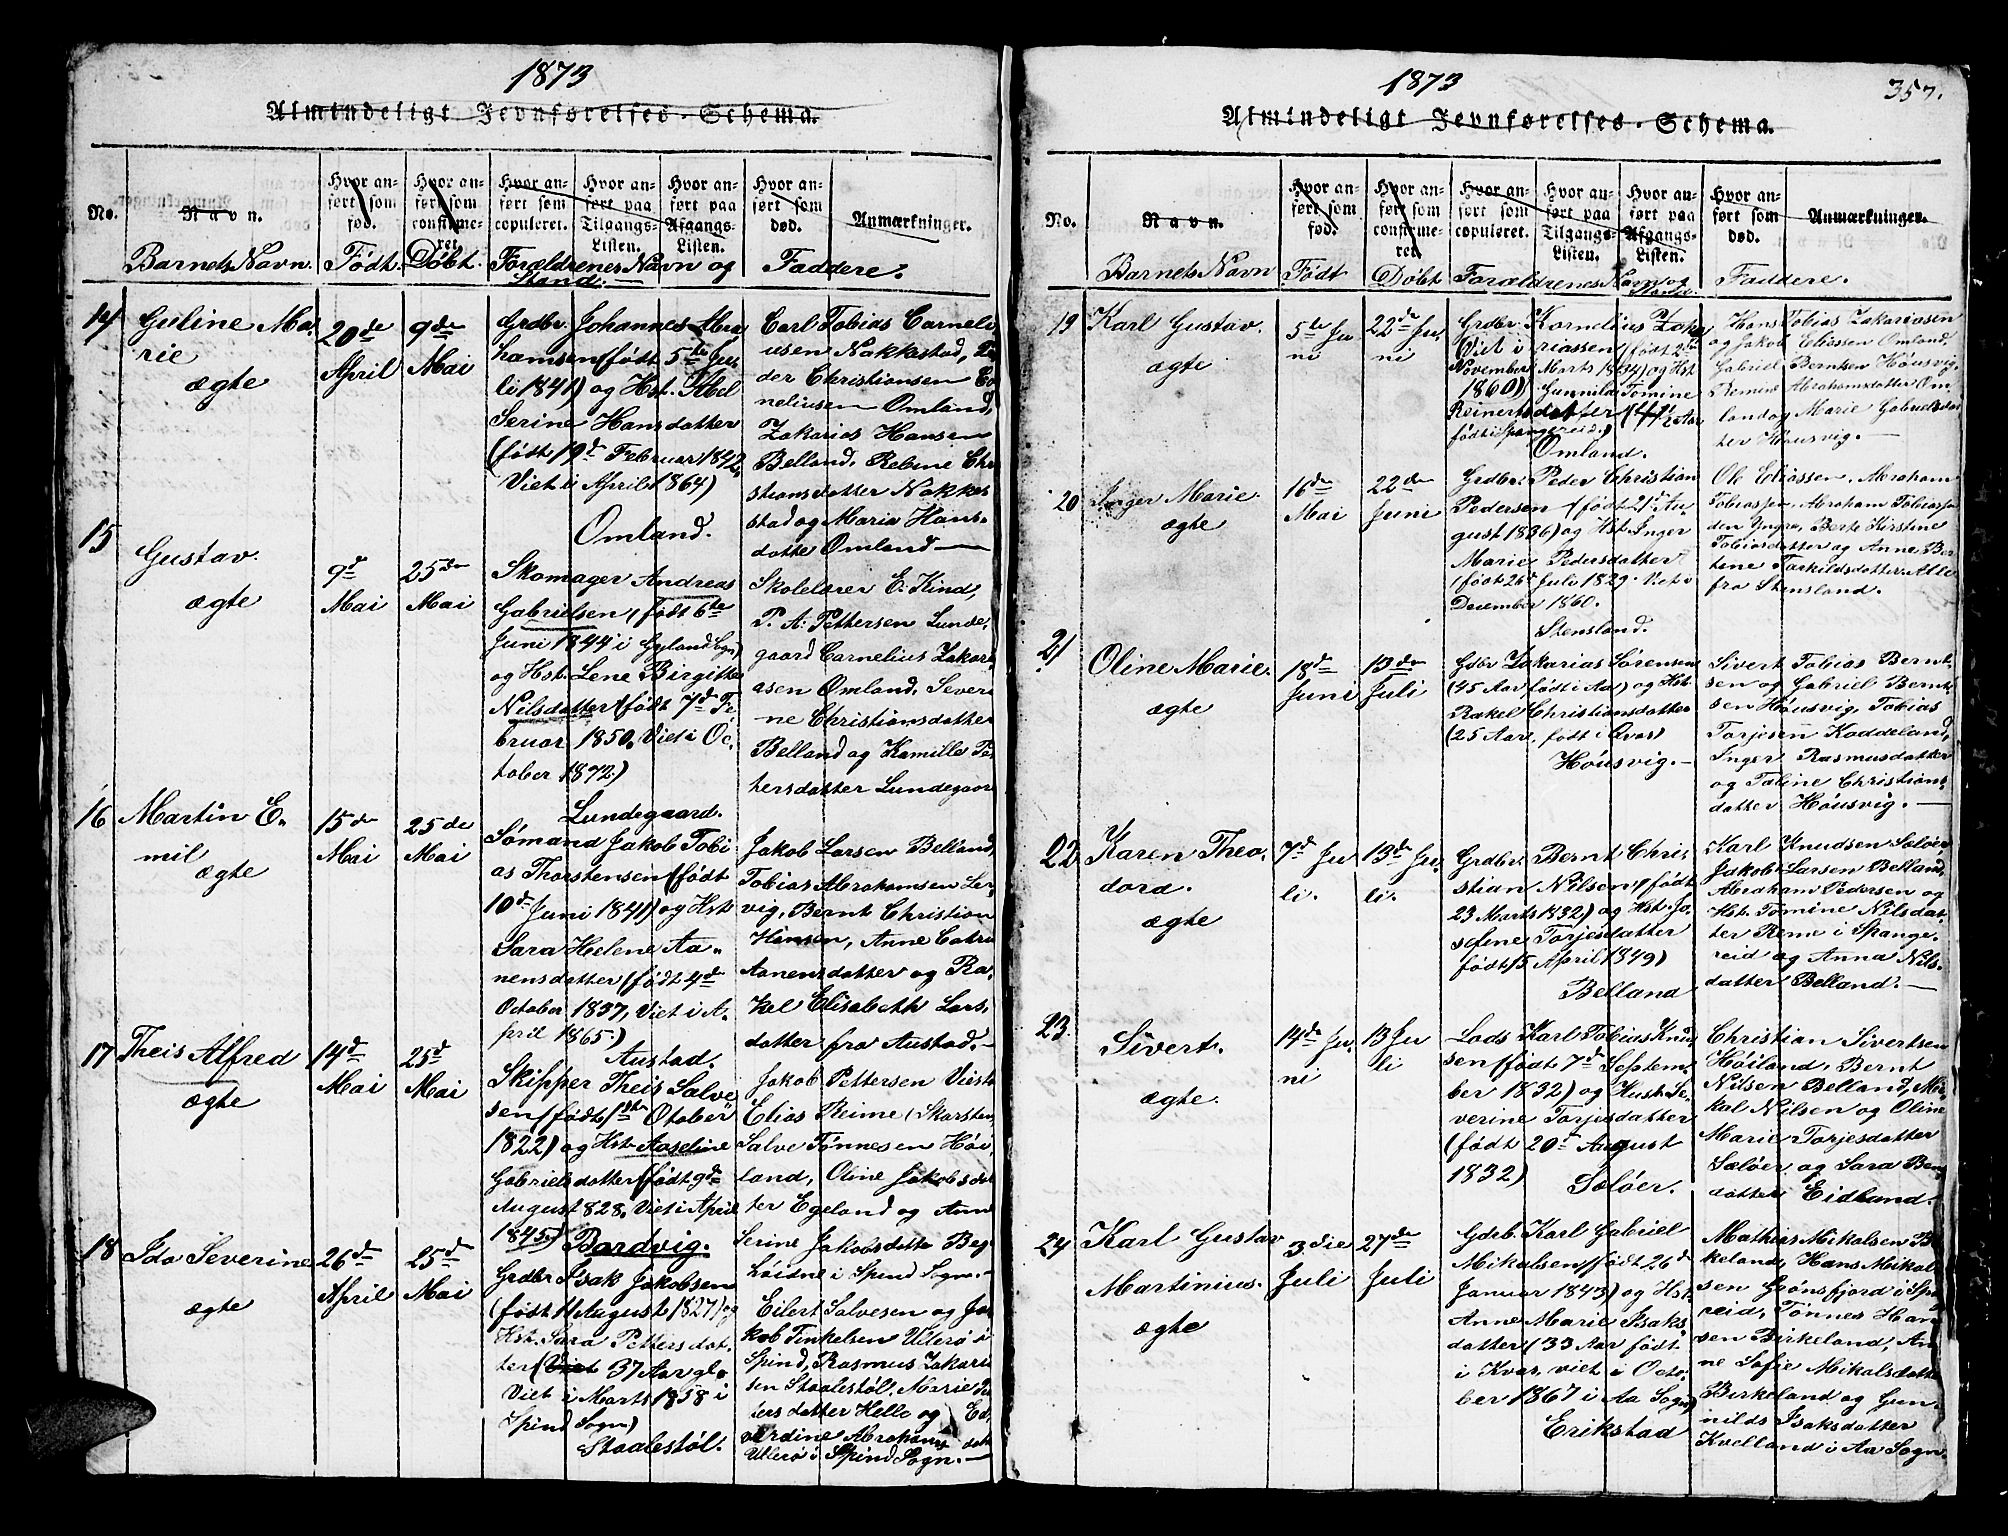 1873
Almindeligt Jevnførelses-Schema.
No.
Navn.
Hvor an-
ført som
fød.
Hvor an-
ført som
confirme-
ret.
Hvor an-
ført som
copuleret.
Hvor an-
ført paa
Tilgangs-
Listen.
Hvor an-
ført paa
Afgangs-
Listen.
Hvor an-
ført som
død.
Anmærkninger.
Barnets Navn.
Født.
Døbt.
Forældrenes Navn og
Stand.
Faddere.
14
Guline Ma-
rie
ægte
20de
April
9de
Mai
Grdbr. Johannes Abra
hamsen (født 5te Ju-
li 1841) og Hst. Abel
Serine Hansdatter
(født 19d Februar 1842,
Viet i April 1864)
Omland.
Carl Tobias Corneli-
usen Nakkestad,
Christiansen
neliusen Omland,
Zakarias Hansen
Belland. Rebine Chri
stiansdatter Nakke-
stad og Maria Hans-
datter Omland
15
Gustav.
ægte
9d
Mai
25de
Mai
Skomager Andreas
Gabrielsen (født 6te
Juni 1844 i Gyland Sogn)
og Hst. Lene Birgitte
Nilsdatter (født 7d Fe-
bruar 1850. Viet i Oc-
tober 1872.)
Lundegaard.
Skolelærer E. Kind,
P. A. Pettersen Lunde-
gaard Carnelius Zakari
asen Omland, Severi
ne Christiansdatter
Belland og Kamille Pe-
tersdatter Lundegaard
16
Martin E-
mil
ægte
15de
Mai
25de
Mai
Sømand Jakob Tobi-
as Thorstensen (født
10d Juni 1841) og Hst
Sara Helene Aa-
nensdatter (født 4d
October 1837, Viet i A-
pril 1865.)
Austad.
Jakob Larsen Belland,
Tobias Abrahamsen Ler-
vig, Bernt Christian
Hansen, Anne Catri
Aanensdatter og Ra-
kel Elisabeth Lars-
datter fra Austad.
17
Theis Alfred
ægte
14de
Mai
25d
Mai
Skipper Theis Salve-
sen (født 1ste October
1822) og Hst. Aaseline
Gabrielsdatter (født 9de
August 828. Viet i April
1845)
Bardvig.
Jakob Pettersen
Elias Reime (Skarsten,
Salve Tønnesen Høi-
land, Oline Jakobsdat-
ter Egeland og Ann
Serine Jakobsdatter
i Spind Sogn.
18
Ida Severine
ægte
26de
April
25de
Mai
Grdbr Isak Jakobsen
(født 11 August 1827) og
Hst. Sara Pettersdat-
ter (Viet 37 Aar gl.
Viet i Marts 1858 i
Spind Sogn)
Staalestøl.
Eilert Salvesen og Ja-
kob Tinkelsen Ullerø i
Spind, Rasmus Zakaria
sen Staalestøl. Marie
tersdatter Helle og Ed-
vardine Abrahams dat
Ullerø i Spind Sogn.
1873
357.
Almindeligt Jevnførelses-Schema.
No.
Navn.
Hvor an-
ført som
fød.
Hvor an-
ført som
confirme-
ret.
Hvor an-
ført som
copuleret.
Hvor an-
ført paa
Tilgangs-
Listen.
Hvor an-
ført paa
Afgangs-
Listen.
Hvor an-
ført som
død.
Anmærkninger.
Barnets Navn
Født
Døbt
Forældrenes Navn og
Stand.
Faddere.
19
Karl Gustav.
ægte
5te Ju
ni
22de Ju-
ni
Grdbr. Kornelius Zaka
(Viet i riassen (født 2de
November Marts 1834) og Hst
1860) Gunnila Tomine
Reinertsdatter Aar
født i Spangereid.)
Omland.
Hans Tobias Zakariasen
og Jakob Eliassen Omland,
Gabriel Berntsen Høusvig.
Abrahamsdatter Om-
land og Marie Gabrielsdat
ter Høusvig.
20
Inger Marie.
ægte
16de
Mai
22de
Juni
Grdbr. Peder Christian
Pedersen (født 21d Au-
gust 1836) og Hst. Inger
Marie Pedersdatter
(født 26d Juli 1829. Viet i
December 1860.
Stensland.
Ole Eliassen, Abraham
Tobiassen, Abraham Tobiassen
den Yngre, Berte Kirstine
Tobiasdatter og Anne Ber-
tine Tarkildsdatter. Alle
fra Stensland.
21
Oline Marie.
ægte
18d
Juni
13de
Juli
Grdbr Zakarias Sørensen
(45 Aar født i Aa) og Hst.
Rakel Christiansdatter
(25 Aar. født i Qvas)
Høusvig.
Sivert Tobias Bernt-
sen og Gabriel Bernt-
sen Høusvig, Tobias
Torjesen Kaddeland,
Inger Rasmusdatter
og Tobine Christians-
datter Høusvig.
22
Karen Theo-
dora.
ægte
7d Ju
li.
13de Ju-
li.
Grdbr. Bernt Chri-
stian Nilsen (født
23 Marts 1832) og Hst. Jo-
sefine Torjesdatter
født 15 April 1849)
Belland
Karl Knudsen Saløer
Jakob Larsen Belland,
Abraham Pedersen og
Hst. Tomine Nilsdat-
ter Reme i Spange-
reid og Anna Nils-
datter Belland.
23.
Sivert.
ægte.
14de Ju-
ni
13 Ju
li
Lods Karl Tobias Knud
sen (født 7d Septem-
ber 1832) og Hust. Se-
verine Torjesdatter
(født 20d August
1832)
Saløer.
Christian Sivertsen
Høiland, Bernt
Nilsen Belland, Mi-
kal Nilsen og Oline
Marie Torjesdatter
Saløer, og Sara Ben
datter Eidland.
24
Karl Gustav
Martinius.
ægte
3die
Juli
27de
Juli
Gdrb. Karl Gabriel
Mikalsen (født 26d
Januar 1843) og Hst.
Anne Marie Isaks-
datter (33 Aar født
i Kvas, viet i Octo-
ber 1867 i Aa Sogn)
Erikstad
Mathias Mikalsen Bir
keland, Hans Mikal-
sen Grønsfjord i Spa
reid, Tønnes Han
sen Birkeland, An
ne Sofie Mikalsdatter
Birkeland og Gun-
nilds Isaksdatter
Kvelland i Aa Sogn.